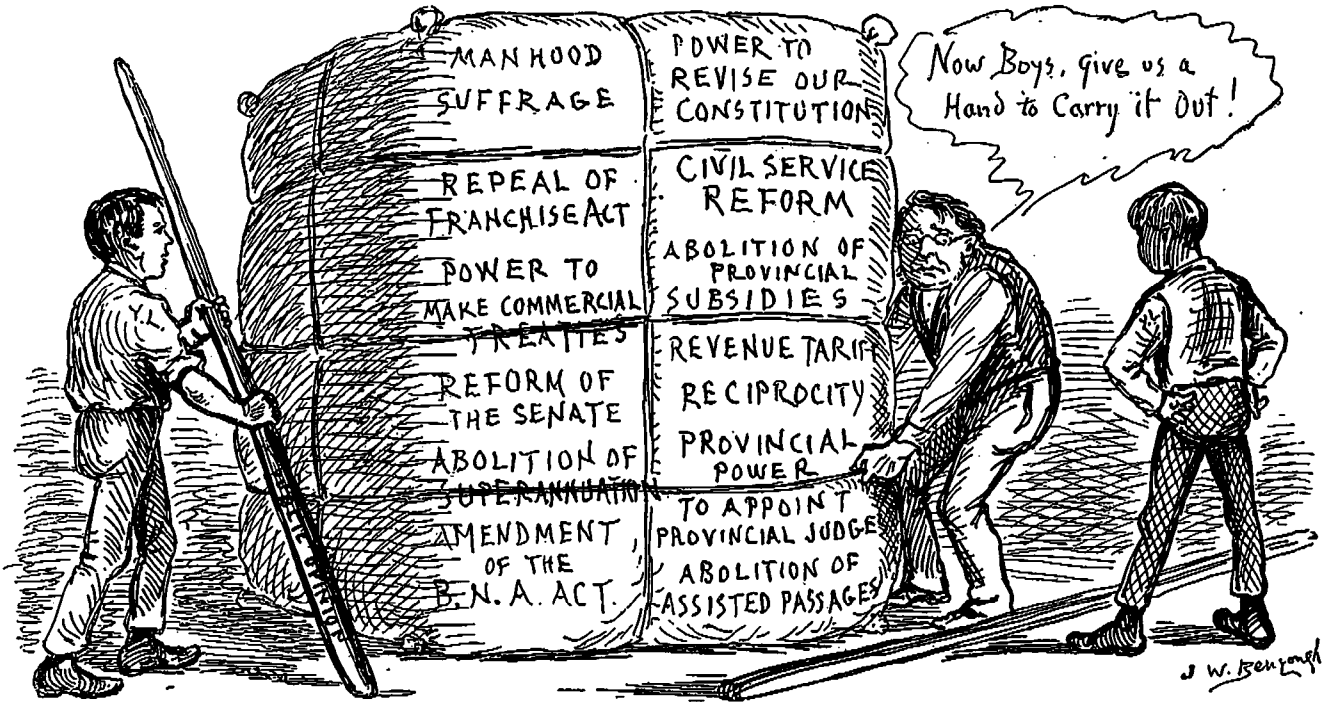 MANHOOD
SUFFRAGE
REPEAL OF
FRANCHISE ACT
POWER TO
MAKE COMMERCIAL
TREATIES
REFORM OF
THE SENATE
ABOLITION OF
SUPERANNUATION
AMENDMENT
OF THE
B.N.A. ACT.
POWER TO
REVISE OUR
CONSTITUTION
CIVIL SERVICE
REFORM
ABOLITION OF
PROVINCIAL
SUBSIDIES
REVENUE TARIFF
RECIPROCITY
PROVINCIAL
POWER
TO APPOINT
PROVINCIAL JUDGE
ABOLITION OF
ASSISTED PASSAGES
Now Boys, give us a
Hand to Carry it Out!
J W. Bengough